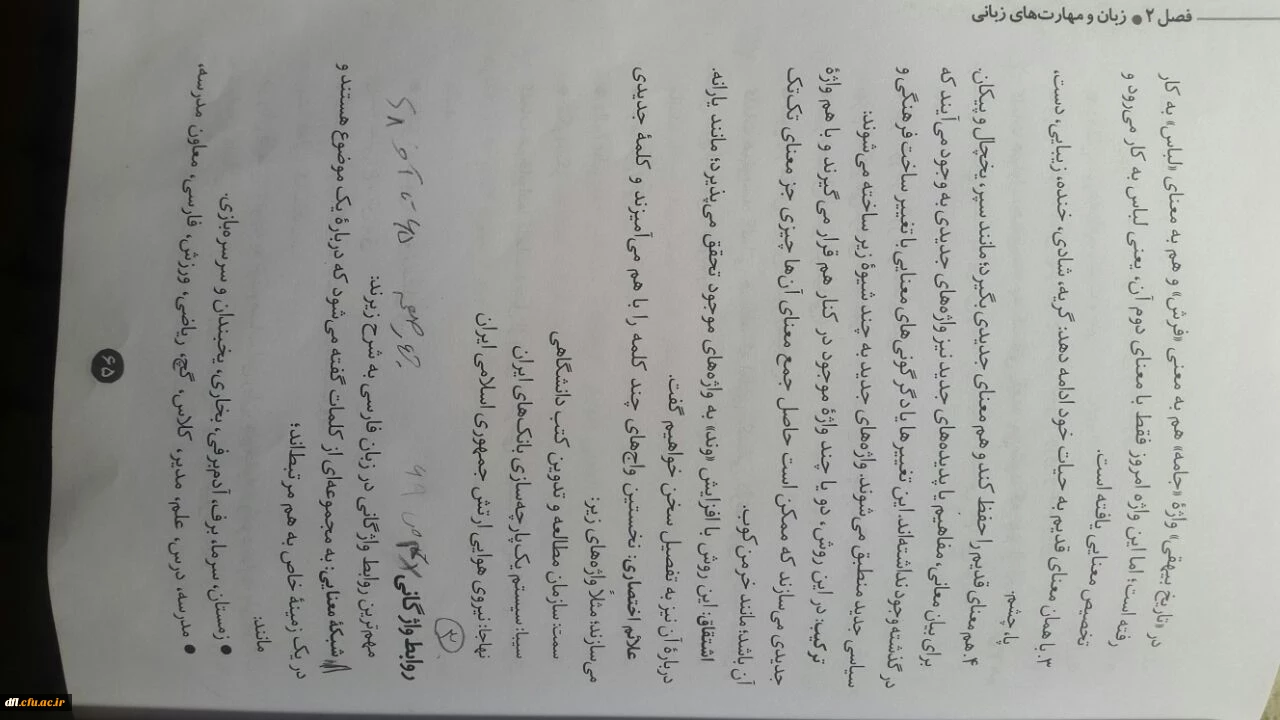 فصل ۲ • زبان و مهارت‌های زبانی
در «تاریخ بیهقی» واژهٔ «جامه» هم به معنی «فرش» و هم به معنای «لباس» به کار
رفته است؛ اما این واژه امروز فقط با معنای دوم آن، یعنی لباس به کار می‌رود و
تخصیص معنایی یافته است.
۳. با همان معنای قدیم به حیات خود ادامه دهد: گریه، شادی، خنده، زیبایی، دست،
پا، چشم.
۴. هم معنای قدیم را حفظ کند و هم معنای جدیدی بگیرد؛ مانند سپر، یخچال و پیکان.
برای بیان معانی، مفاهیم یا پدیده‌های جدید نیز واژه‌های جدیدی به وجود می‌آیند که
در گذشته وجود نداشته‌اند. این تغییرها یا دگرگونی‌های معنایی با تغییر ساخت فرهنگی و
سیاسی جدید منطبق می‌شوند. واژه‌های جدید به چند شیوهٔ زیر ساخته می‌شوند:
ترکیب: در این روش، دو یا چند واژهٔ موجود در کنار هم قرار می‌گیرند و با هم واژهٔ
جدیدی می‌سازند که ممکن است حاصل جمع معنای آن‌ها چیزی جز معنای تک‌تک
آن باشد؛ مانند خرمن‌کوب.
اشتقاق: این روش با افزایش «وند» به واژه‌های موجود تحقق می‌پذیرد؛ مانند یارانه.
دربارهٔ آن نیز به تفصیل سخن خواهیم گفت.
علائم اختصاری: نخستین واج‌های چند کلمه را با هم می‌آمیزند و کلمهٔ جدیدی
می‌سازند؛ مثلاً واژه‌های زیر:
سمت: سازمان مطالعه و تدوین کتب دانشگاهی
سیبا: سیستم یک‌پارچه‌سازی بانک‌های ایران
نهاجا: نیروی هوایی ارتش جمهوری اسلامی ایران
۲
روابط واژگانی
مهم‌ترین روابط واژگانی در زبان فارسی به شرح زیرند:
شبکهٔ معنایی: به مجموعه‌ای از کلمات گفته می‌شود که دربارهٔ یک موضوع هستند و
در یک زمینهٔ خاص به هم مرتبط‌اند؛
مانند:
• زمستان، سرما، برف، آدم‌برفی، بخاری، یخبندان و سرسره‌بازی.
• مدرسه، درس، علم، مدیر، کلاس، گچ، ریاضی، ورزش، فارسی، معاون مدرسه،
۶۵
dfl.cfu.ac.ir